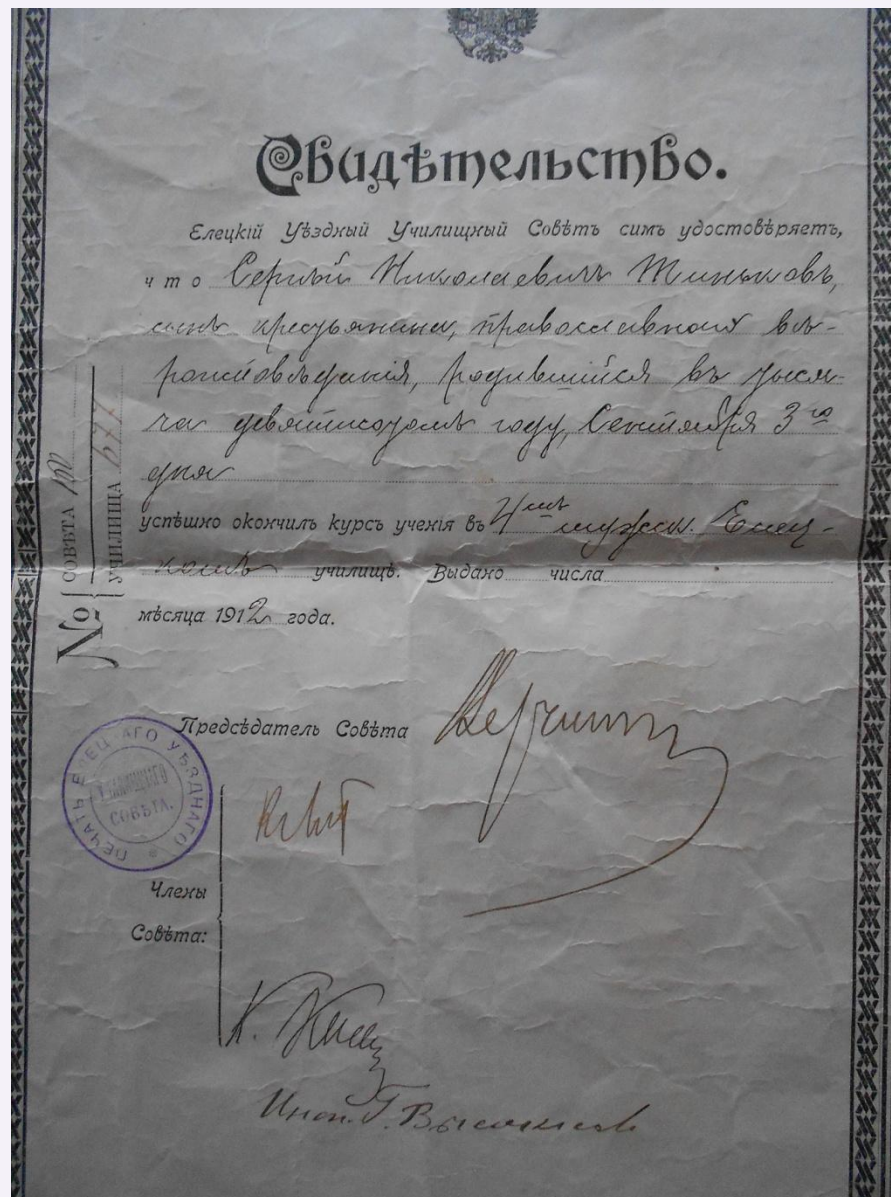 Свидѣтельство.
Елецкій Уѣздный Училищный Совѣтъ симъ удостовѣряетъ,
что Сергѣй Николаевичъ Тиньковъ,
сынъ крестьянина, православнаго вѣ-
роисповѣданія, родившійся въ тыся-
ча девятисотомъ году, Сентября 3го
дня
успѣшно окончилъ курсъ ученія въ 4мъ мужск. Елец-
комъ училищѣ. Выдано числа
мѣсяца 1912 года.
№ СОВѢТА
УЧИЛИЩА 677
Предсѣдатель Совѣта
ПЕЧАТЬ ЕЛЕЦКАГО УѢЗДНАГО
УЧИЛИЩНАГО
СОВѢТА.
Члены
Совѣта:
К.
Инсп. Г.